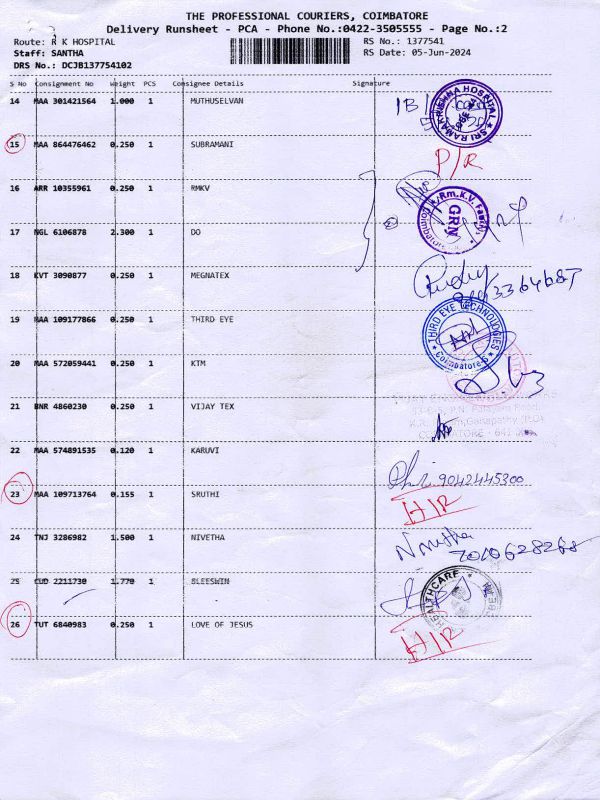 THE PROFESSIONAL COURIERS, COIMBATORE
Delivery Runsheet - PCA - Phone No.:0422-3505555 - Page No.:2
Route: R K HOSPITAL RS No.: 1377541
Staff: SANTHA RS Date: 05-Jun-2024
DRS No.: DCJB137754102
S No Consignment No Weight PCS Consignee Details Signature
14 MAA 301421564 1.000 1 MUTHUSELVAN
SRI RAMAKRISHNA HOSPITAL
15 MAA 864476462 0.250 1 SUBRAMANI
P/R
16 ARR 10355961 0.250 1 RMKV
Rm.K.V.
GRN
17 NGL 6106878 2.300 1 DO
18 KVT 3090877 0.250 1 MEGNATEX
19 MAA 109177866 0.250 1 THIRD EYE
THIRD EYE TECHNOLOGIES
Coimbatore
20 MAA 572059441 0.250 1 KTM
21 BNR 4860230 0.250 1 VIJAY TEX
22 MAA 574891535 0.120 1 KARUVI
9042445300
23 MAA 109713764 0.155 1 SRUTHI
H/R
24 TNJ 3286982 1.500 1 NIVETHA
Nivetha
25 CUD 2211730 1.770 1 BLEESWIN
HEALTHCARE
26 TUT 6840983 0.250 1 LOVE OF JESUS
H/R